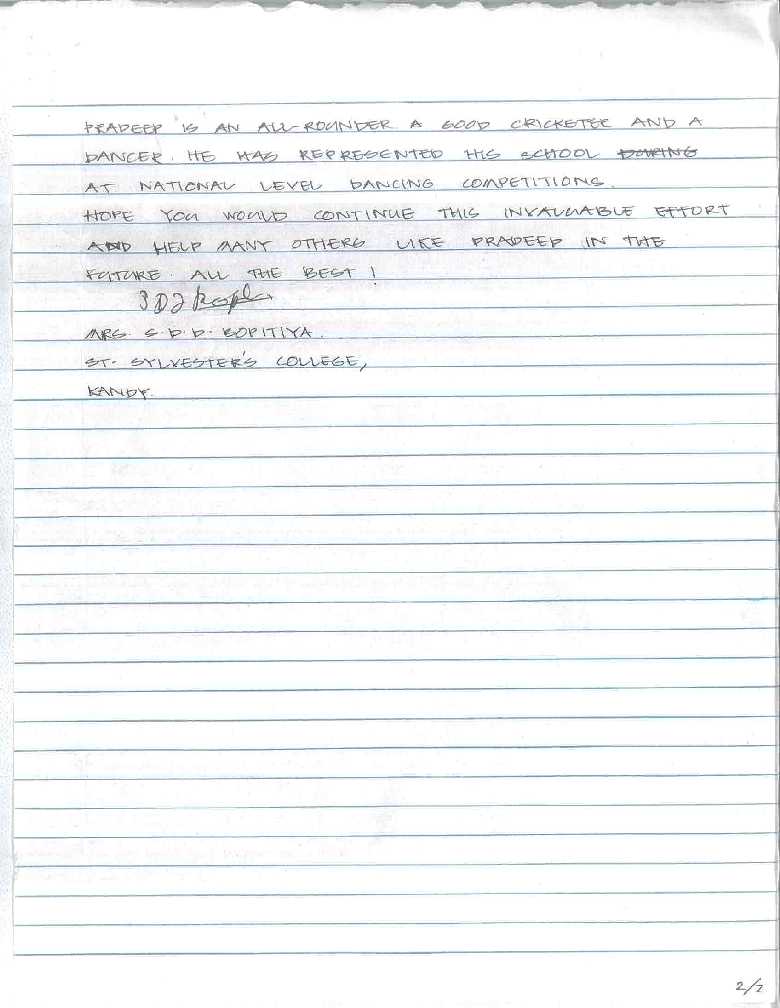 PRADEEP IS AN ALL-ROUNDER A GOOD CRICKETER AND A
DANCER. HE HAS REPRESENTED HIS SCHOOL DURING
AT NATIONAL LEVEL DANCING COMPETITIONS.
HOPE YOU WOULD CONTINUE THIS INVALUABLE EFFORT
AND HELP MANY OTHERS LIKE PRADEEP IN THE
FUTURE. ALL THE BEST!
MRS. S.D.D. BOPITIYA.
ST. SYLVESTER'S COLLEGE,
KANDY.
2/2